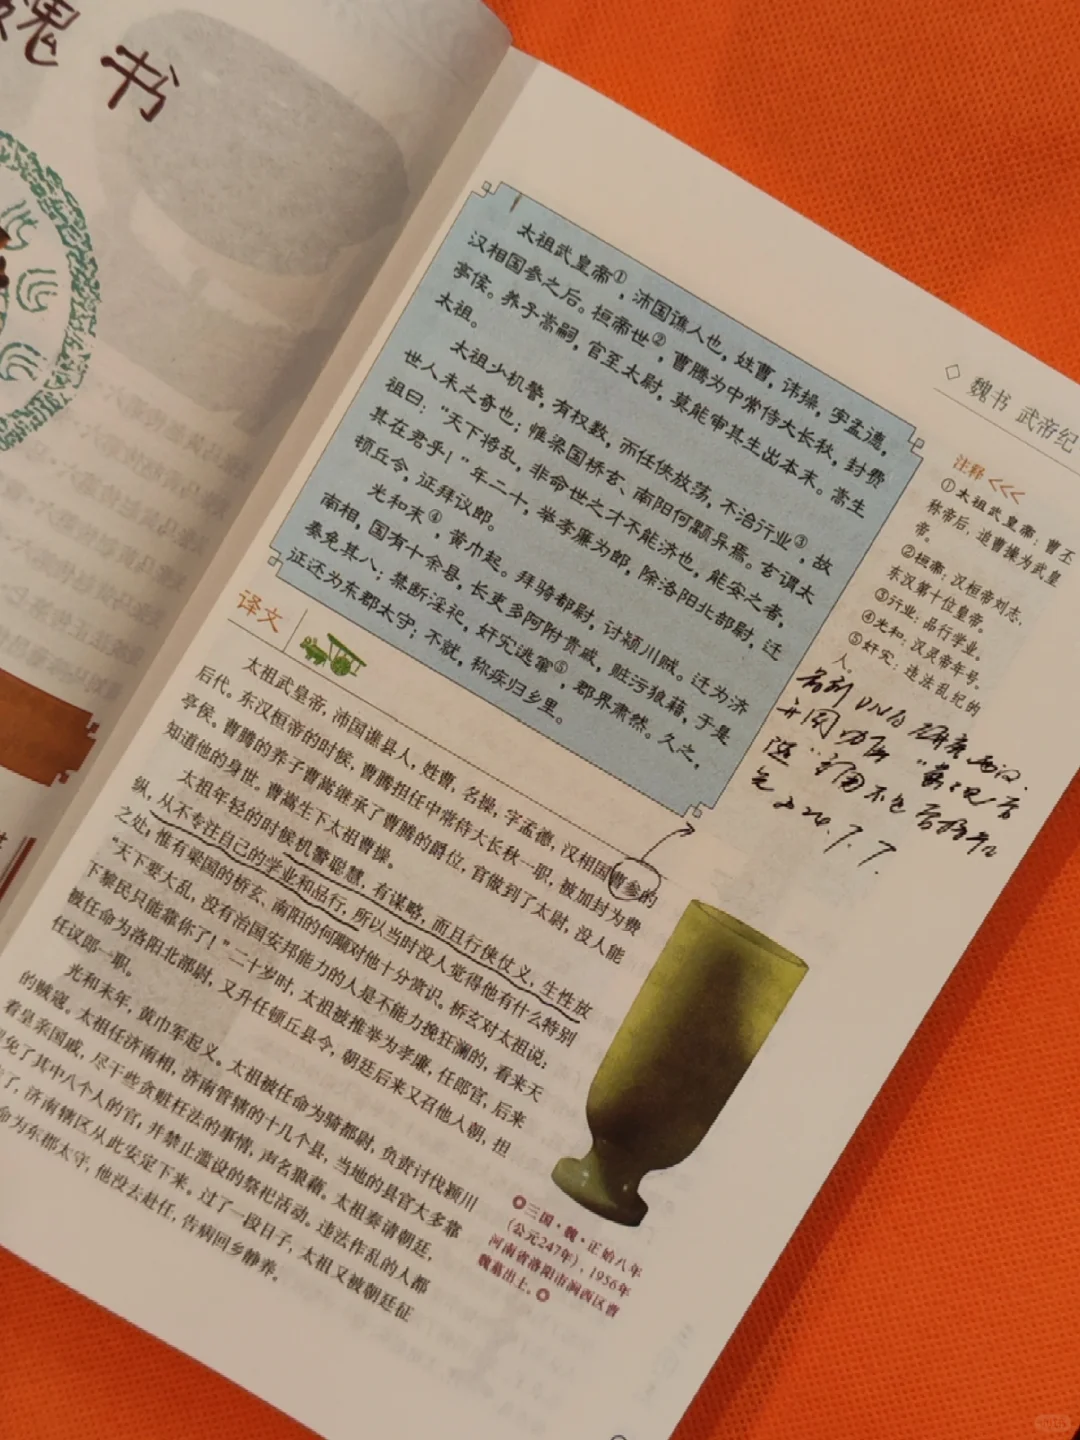 魏书
太祖武皇帝①，沛国谯人也，姓曹，讳操，字孟德，
汉相国参之后。桓帝世②，曹腾为中常侍大长秋，封费
亭侯。养子嵩嗣，官至太尉，莫能审其生出本末。嵩生
太祖。
太祖少机警，有权数，而任侠放荡，不治行业③，故
世人未之奇也；惟梁国桥玄、南阳何颙异焉。玄谓太
祖曰：“天下将乱，非命世之才不能济也，能安之者，
其在君乎！”年二十，举孝廉为郎，除洛阳北部尉，迁
顿丘令，征拜议郎。
光和末④，黄巾起。拜骑都尉，讨颍川贼。迁为济
南相，国有十余县，长吏多阿附贵戚，赃污狼藉，于是
奏免其八；禁断淫祀，奸宄逃窜⑤，郡界肃然。久之，
征还为东郡太守；不就，称疾归乡里。
◇ 魏书 武帝纪
注释<<<
①太祖武皇帝：曹丕
称帝后，追曹操为武皇
帝。
②桓帝：汉桓帝刘志，
东汉第十位皇帝。
③行业：品行学业。
④光和：汉灵帝年号。
⑤奸宄：违法乱纪的
人。
2024.7.7.
译文
太祖武皇帝，沛国谯县人，姓曹，名操，字孟德，汉相国曹参的
后代。东汉桓帝的时候，曹腾担任中常侍大长秋一职，被加封为费
亭侯。曹腾的养子曹嵩继承了曹腾的爵位，官做到了太尉，没人能
知道他的身世。曹嵩生下太祖曹操。
太祖年轻的时候机警聪慧，有谋略，而且行侠仗义，生性放
纵，从不专注自己的学业和品行，所以当时没人觉得他有什么特别
之处，惟有梁国的桥玄、南阳的何颙对他十分赏识。桥玄对太祖说：
“天下要大乱，没有治国安邦能力的人是不能力挽狂澜的，看来天
下黎民只能靠你了！”二十岁时，太祖被推举为孝廉，任郎官，后来
被任命为洛阳北部尉，又升任顿丘县令，朝廷后来又召他入朝，担
任议郎一职。
光和末年，黄巾军起义。太祖被任命为骑都尉，负责讨伐颍川
的贼寇。太祖任济南相，济南管辖的十几个县，当地的县官大多靠
看皇亲国戚，尽干些贪赃枉法的事情，声名狼藉。太祖奏请朝廷，
免了其中八个人的官，并禁止滥设的祭祀活动。违法作乱的人都
了，济南辖区从此安定下来。过了一段日子，太祖又被朝廷征
命为东郡太守，他没去赴任，告病回乡静养。
三国·魏·正始八年
（公元247年），1956年
河南省洛阳市涧西区曹
魏墓出土。